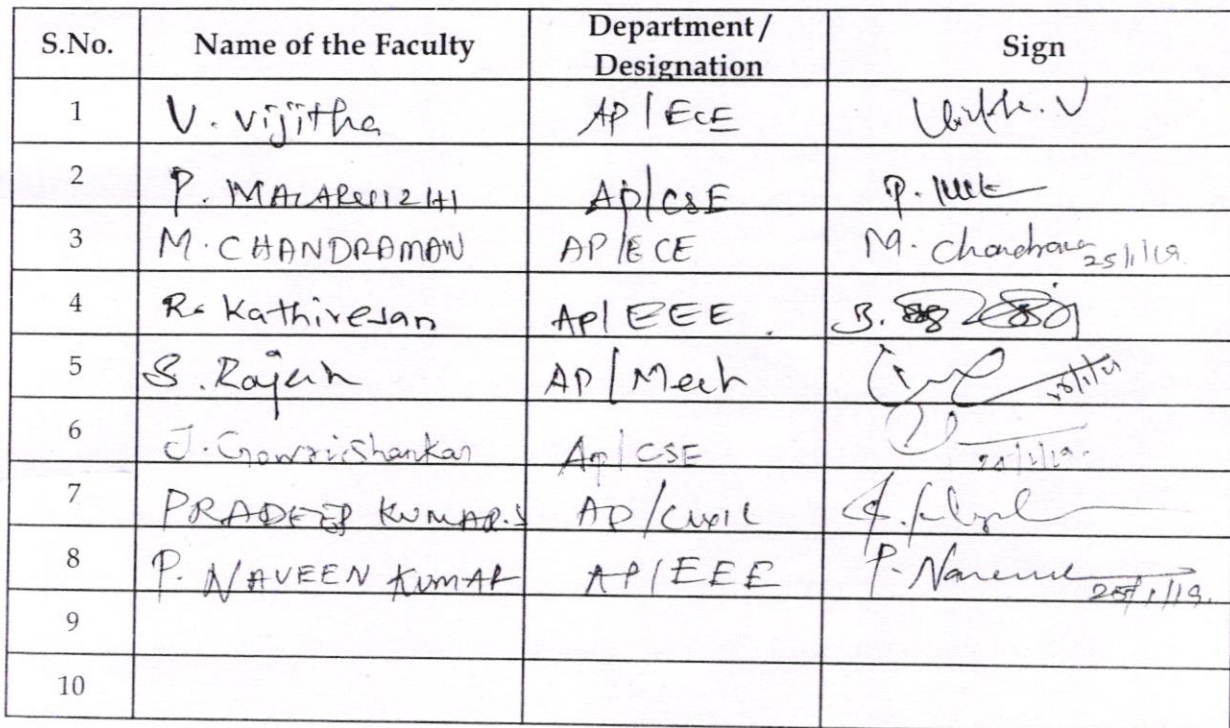 S.No. Name of the Faculty Department/ Designation Sign
1 V. Vijitha AP/ECE
2 P. MALARVIZHI AP/CSE P.
3 M. CHANDRAMAN AP/ECE M. Chandra 25/1/19.
4 R. Kathiresan AP/EEE
5 S. Rajesh AP/Mech
6 J. Gowrishankar AP/CSE
7 PRADEEP KUMAR.S AP/CIVIL
8 P. NAVEEN KUMAR AP/EEE P. Naveen 25/1/19.
9
10